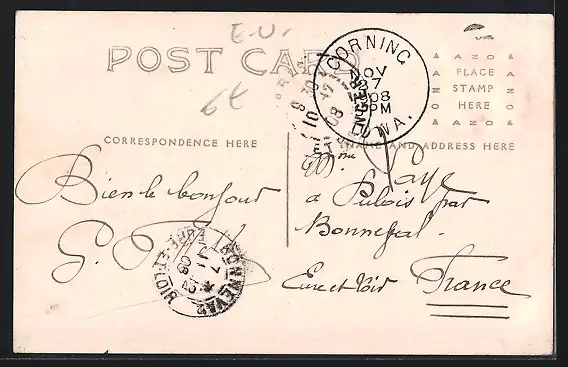 E.U.
POST CARD
6t
CORNING
NOV
27
08
PM
IOWA.
AZO
PLACE
STAMP
HERE
AZO
CORRESPONDENCE HERE
NAME AND ADDRESS HERE
Bien le bonjour
G.
Mme Paye
à Pulois par
Bonneval
Eure et Loir France
BONNEVAL
EURE-ET-LOIR
08